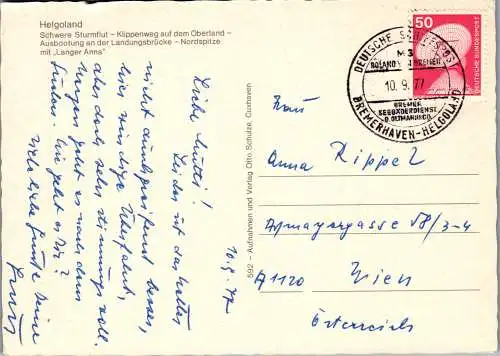 Helgoland
Schwere Sturmflut – Klippenweg auf dem Oberland –
Ausbootung an der Landungsbrücke – Nordspitze
mit „Langer Anna“
10.9.77
Liebe Mutti!
Leider ist das Wetter
nicht durchgreifend besser,
hier windige Überfahrt,
aber doch sehr stimmungsvoll.
Morgen geht es nach dem
Süden. Wie geht es Dir?
Viele liebe Grüße Deine
592 – Aufnahmen und Verlag Otto Schulze, Cuxhaven
50
DEUTSCHE BUNDESPOST
DEUTSCHE SCHIFFSPOST
MS
ROLAND BREMEN
10.9.77
BREMER
SEEBÄDERDIENST
BREMERHAVEN-HELGOLAND
Frau
Anna Rippel
58/3-4
A 1120 Wien
Österreich